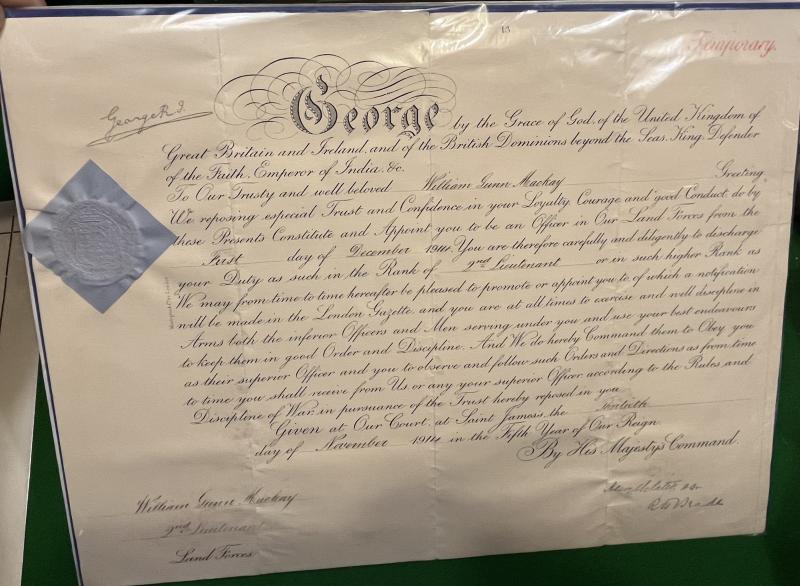 13
Temporary.
George R.I.
George by the Grace of God, of the United Kingdom of
Great Britain and Ireland, and of the British Dominions beyond the Seas, King, Defender
of the Faith, Emperor of India, &c.
To Our Trusty and well beloved William Gunn Mackay Greeting.
We reposing especial Trust and Confidence in your Loyalty, Courage and good Conduct, do by
these Presents Constitute and Appoint you to be an Officer in Our Land Forces from the
First day of December 1914. You are therefore carefully and diligently to discharge
your Duty as such in the Rank of 2nd Lieutenant or in such higher Rank as
We may from time to time hereafter be pleased to promote or appoint you to, of which a notification
will be made in the London Gazette, and you are at all times to exercise and well discipline in
Arms both the inferior Officers and Men serving under you and use your best endeavours
to keep them in good Order and Discipline. And We do hereby Command them to Obey you
as their superior Officer and you to observe and follow such Orders and Directions as from time
to time you shall receive from Us, or any your superior Officer, according to the Rules and
Discipline of War, in pursuance of the Trust hereby reposed in you.
Given at Our Court, at Saint James's, the
day of November 1914 in the Fifth Year of Our Reign.
By His Majesty's Command.
William Gunn Mackay
2nd Lieutenant
Land Forces